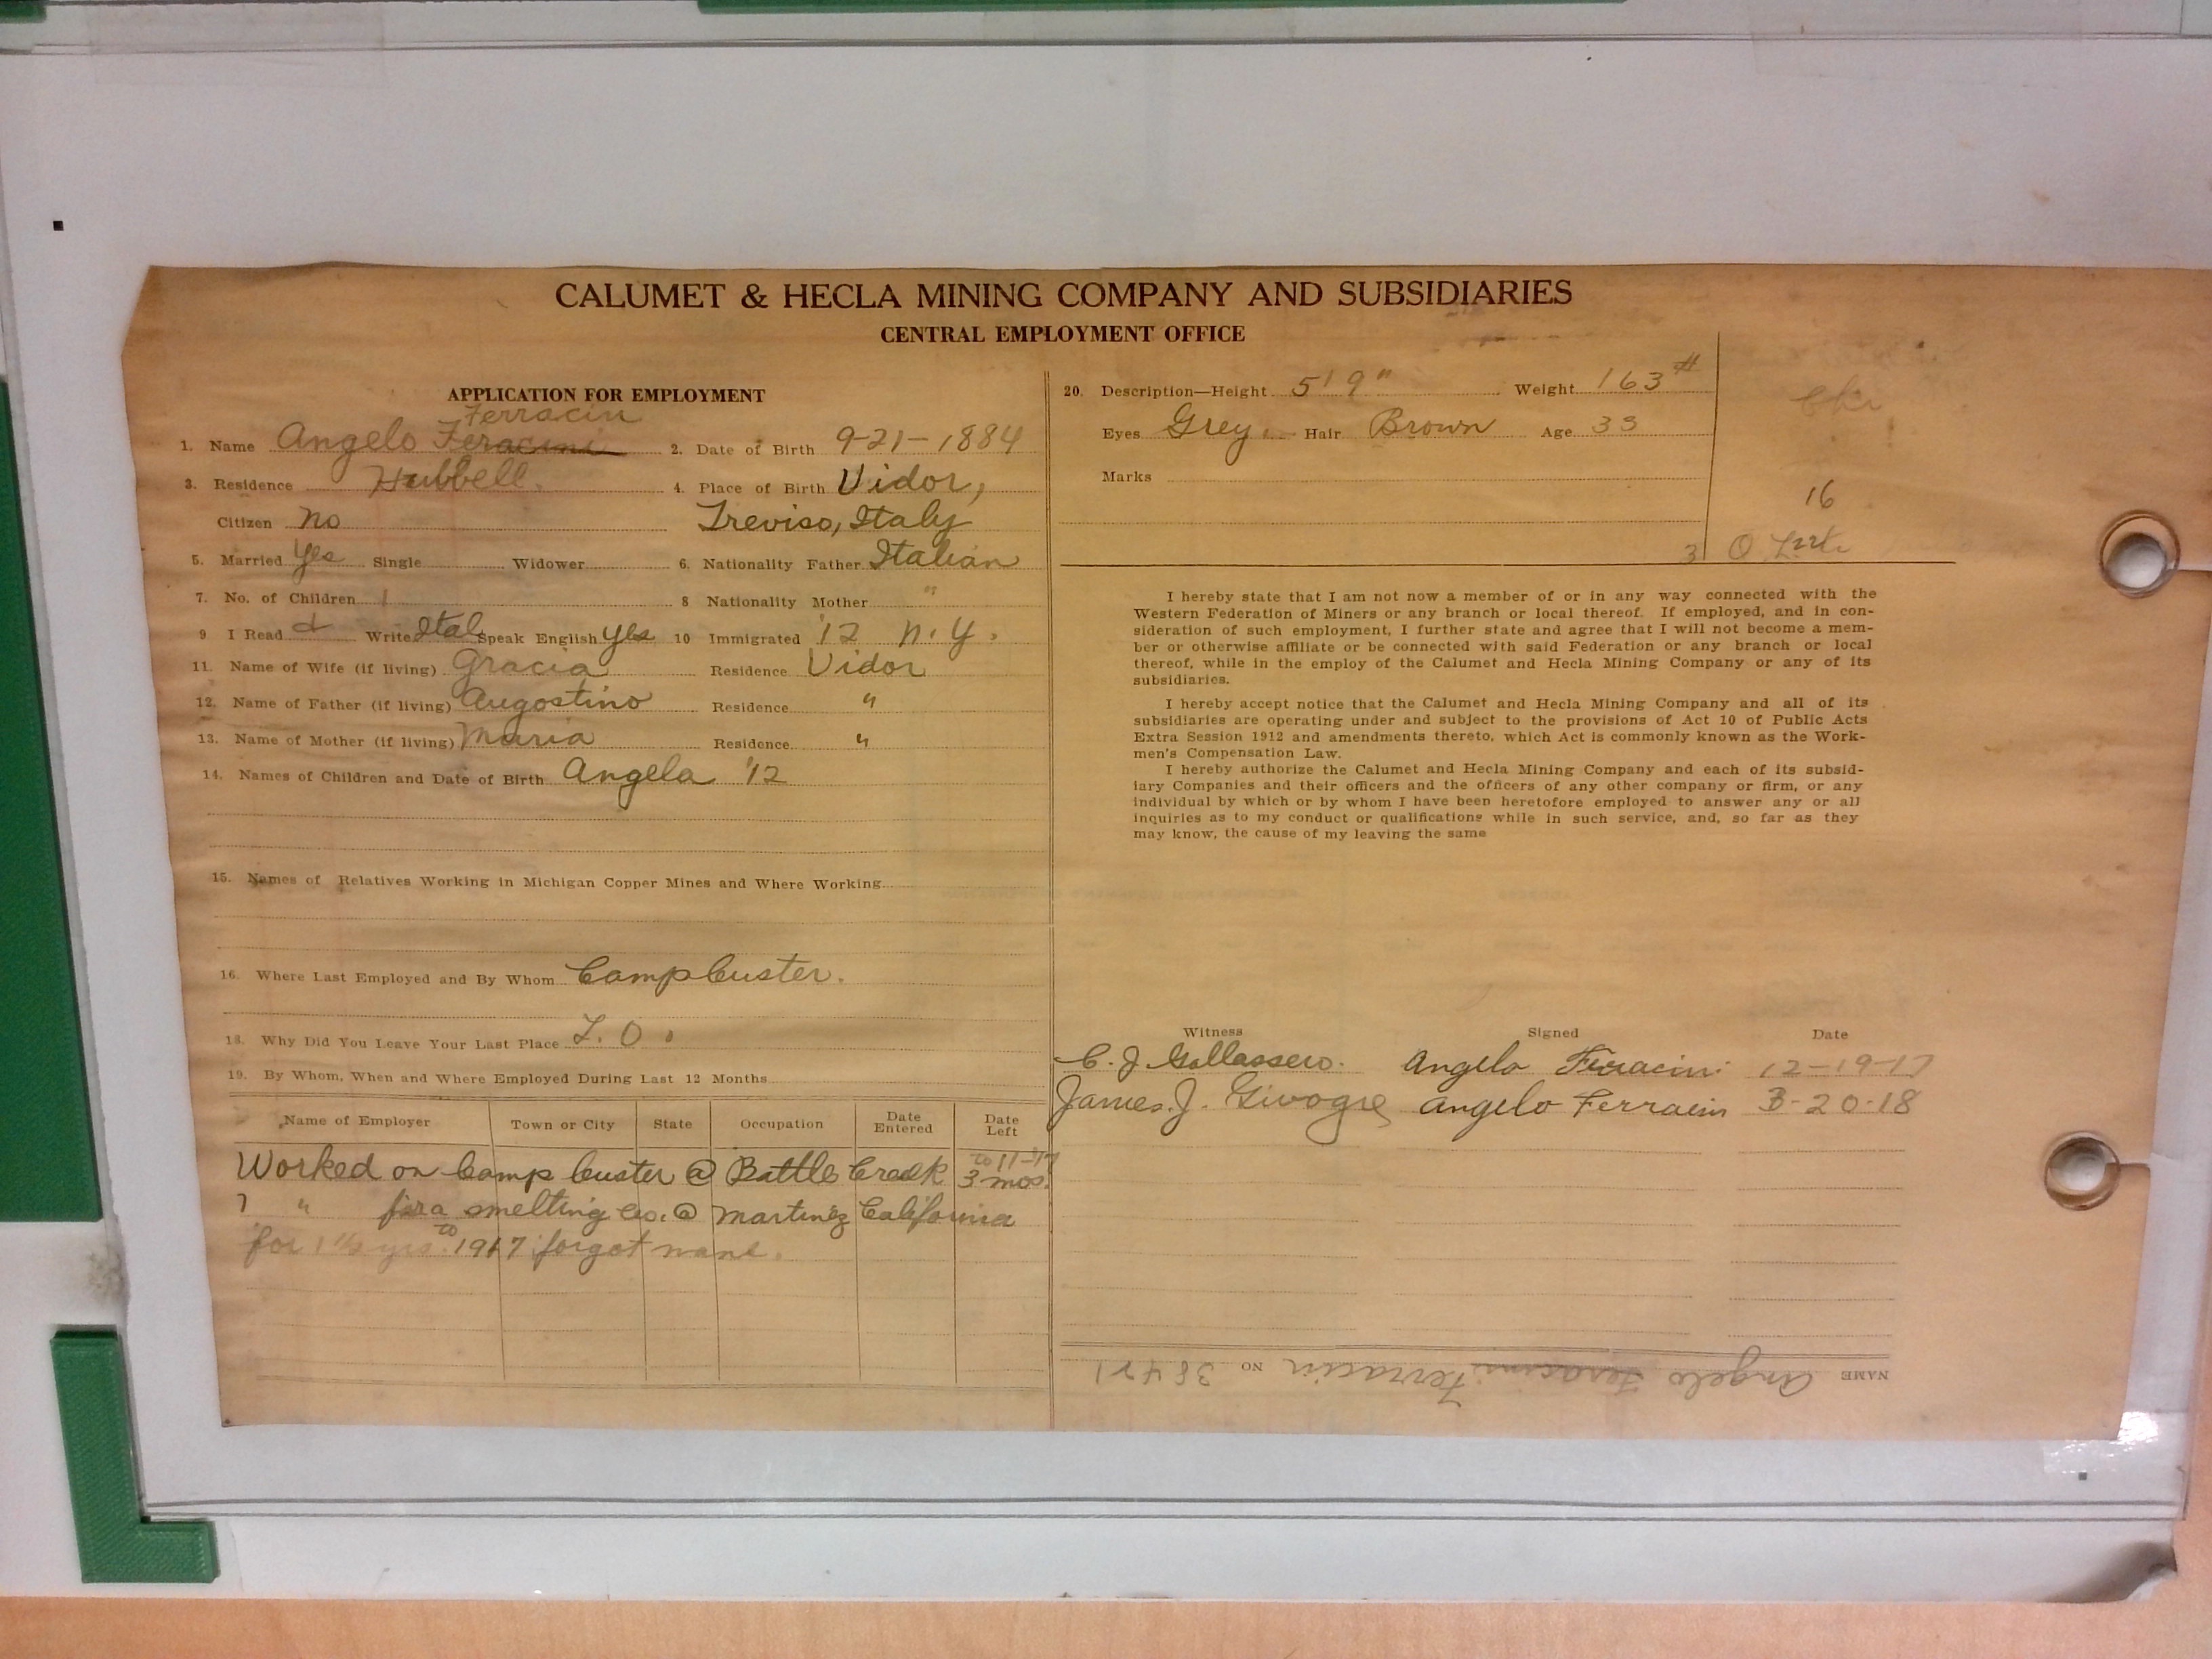 CALUMET & HECLA MINING COMPANY AND SUBSIDIARIES
CENTRAL EMPLOYMENT OFFICE
APPLICATION FOR EMPLOYMENT
Ferracin
1. Name Angelo Feracini 2. Date of Birth 9-21-1884
3. Residence Hubbell. 4. Place of Birth Vidor,
Citizen no Treviso, Italy
5. Married Yes Single Widower 6. Nationality Father Italian
7. No. of Children 1 8 Nationality Mother "
9 I Read & Write Ital Speak English yes 10 Immigrated '12 N.Y.
11. Name of Wife (if living) Gracia Residence Vidor
12. Name of Father (if living) Augostino Residence "
13. Name of Mother (if living) Maria Residence "
14. Names of Children and Date of Birth Angela '12
15. Names of Relatives Working in Michigan Copper Mines and Where Working
16. Where Last Employed and By Whom Camp Custer.
18. Why Did You Leave Your Last Place L.O.
19. By Whom, When and Where Employed During Last 12 Months
Name of Employer Town or City State Occupation Date Entered Date Left
to 11-17
Worked on Camp Custer @ Battle Creek 3 mos.
" for a smelting Co. @ Martinez California
for 1 1/2 yrs. to 1917 forgot name.
20. Description—Height 5' 9" Weight 163#
Eyes Grey Hair Brown Age 33
Marks
16
3
I hereby state that I am not now a member of or in any way connected with the
Western Federation of Miners or any branch or local thereof. If employed, and in con-
sideration of such employment, I further state and agree that I will not become a mem-
ber or otherwise affiliate or be connected with said Federation or any branch or local
thereof, while in the employ of the Calumet and Hecla Mining Company or any of its
subsidiaries.
I hereby accept notice that the Calumet and Hecla Mining Company and all of its
subsidiaries are operating under and subject to the provisions of Act 10 of Public Acts
Extra Session 1912 and amendments thereto, which Act is commonly known as the Work-
men's Compensation Law.
I hereby authorize the Calumet and Hecla Mining Company and each of its subsid-
iary Companies and their officers and the officers of any other company or firm, or any
individual by which or by whom I have been heretofore employed to answer any or all
inquiries as to my conduct or qualifications while in such service, and, so far as they
may know, the cause of my leaving the same
Witness Signed Date
C. J. Gallassero. Angelo Feracini 12-19-17
James J. Angelo Ferracin 3-20-18
NAME Angelo Feracini Ferracin NO 38421